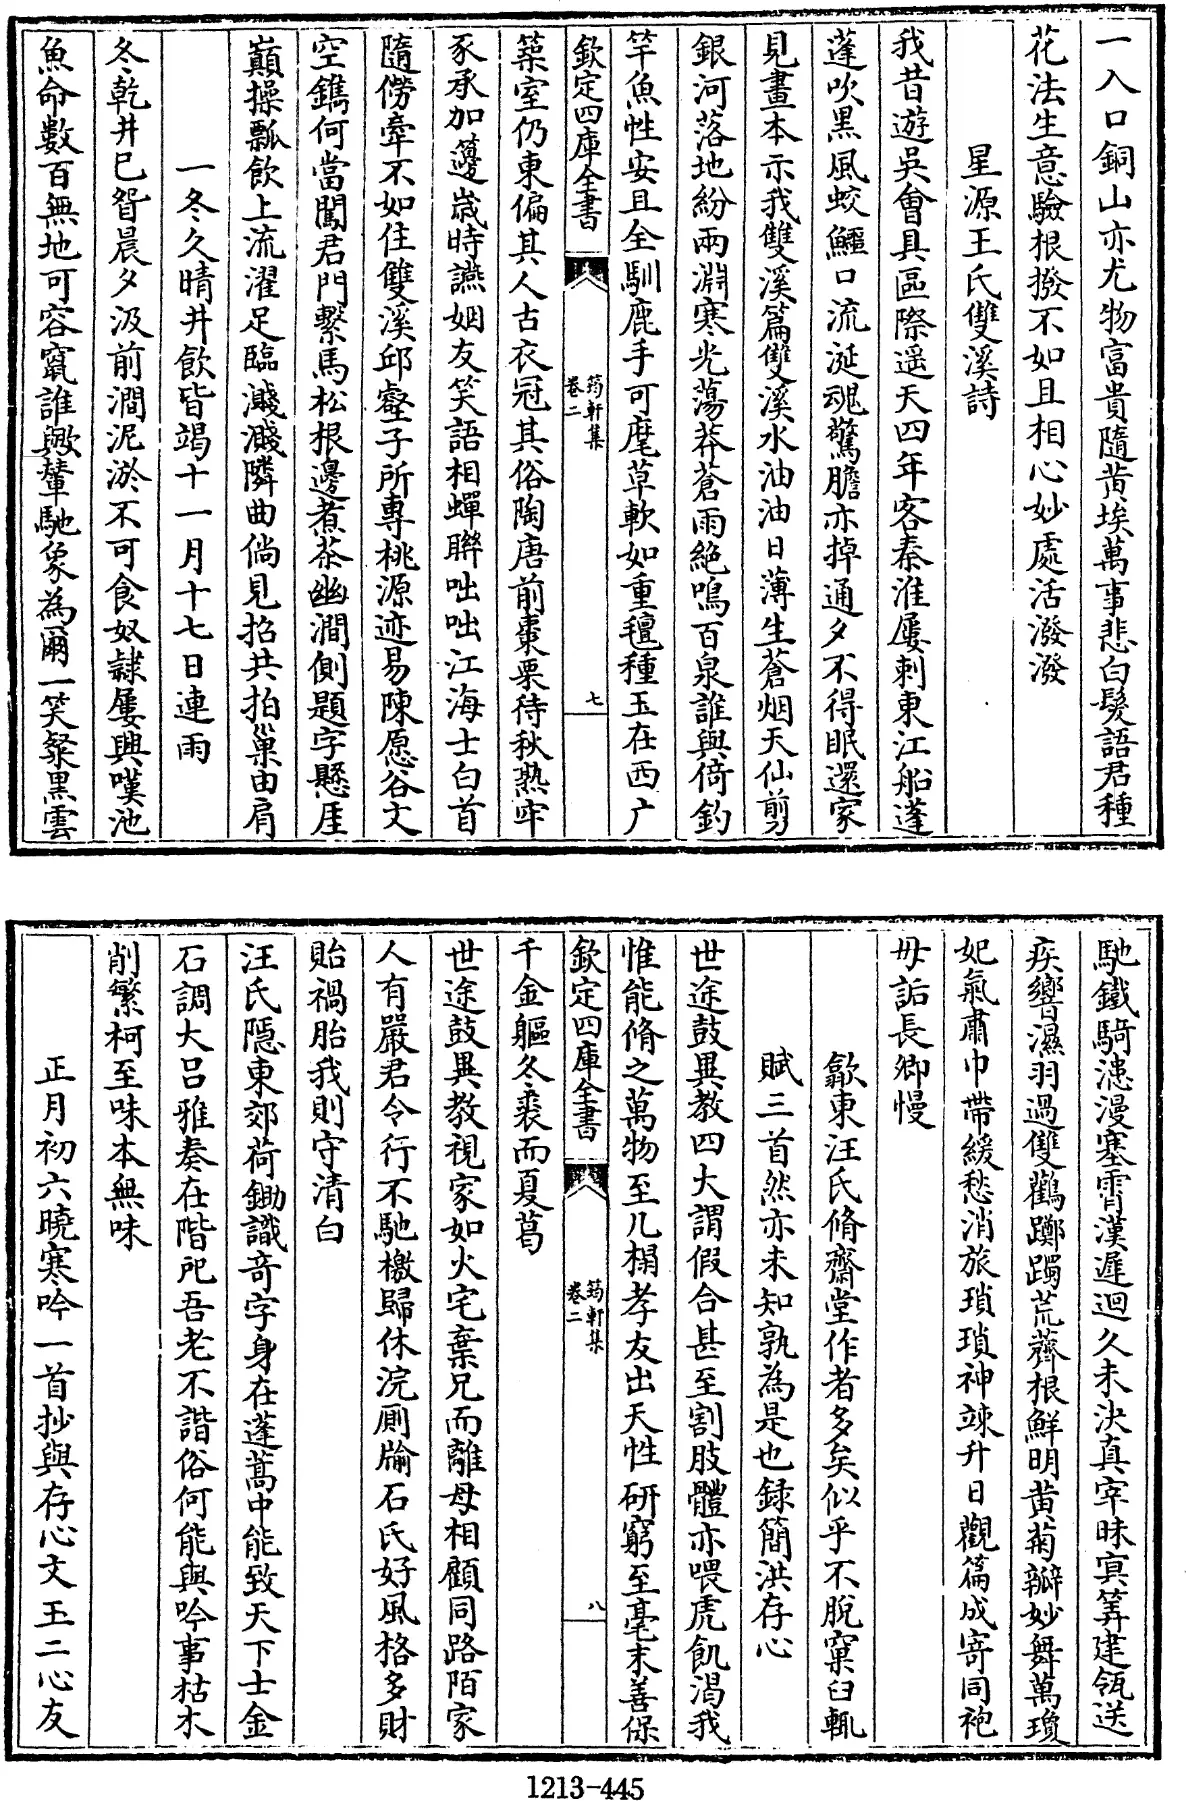 一入口銅山亦尤物富貴隨黄埃萬事悲白髮語君種
花法生意驗根撥不如且相心妙處活潑潑
星源王氏雙溪詩
我昔遊吳會具區際遥天四年客秦淮屢刺東江船蓬
蓬吹黒風蛟鱷口流涎魂驚膽亦掉通夕不得眠還家
見畫本示我雙溪篇雙溪水油油日薄生蒼烟天仙剪
銀河落地紛兩淵寒光蕩莽蒼雨絶鳴百泉誰與倚釣
竿魚性安且全馴鹿手可麾草軟如重氊種玉在西广
欽定四庫全書
筠軒集
卷二
七
築室仍東偏其人古衣冠其俗陶唐前棗栗待秋熟牢
豕承加籩嵗時讌姻友笑語相蟬聯咄咄江海士白首
隨僗牽不如住雙溪邱壑子所專桃源迹易陳愿谷文
空鐫何當闖君門繫馬松根邊煮茶幽澗側題字懸厓
巔操瓢飲上流濯足臨濺濺隣曲倘見招共拍巢由肩
一冬久晴井飲皆竭十一月十七日連雨
冬乾井已眢晨夕汲前澗泥淤不可食奴隸屢興嘆池
魚命數百無地可容竄誰歟輦馳象為爾一笑粲黒雲
馳鐵騎漶漫塞霄漢遲迴久未決真宰昧㝠筭建瓴送
疾響濕羽過雙鸛躑躅荒薺根鮮明黄菊瓣妙舞萬瓊
妃氣肅巾帶緩愁消旅瑣瑣神竦升日觀篇成寄同袍
毋詬長卿慢
歙東汪氏脩齋堂作者多矣似乎不脫窠臼輒
賦三首然亦未知孰為是也録簡洪存心
世途鼓異教四大謂假合甚至割肢體亦喂虎飢渴我
惟能脩之萬物至几榻孝友出天性研窮至毫末善保
欽定四庫全書
筠軒集
卷二
八
千金軀冬裘而夏葛
世途鼓異教視家如火宅棄兄而離母相顧同路陌家
人有嚴君令行不馳檄歸休浣厠牏石氏好風格多財
貽禍胎我則守清白
汪氏隱東郊荷鋤識竒字身在蓬蒿中能致天下士金
石調大吕雅奏在階戺吾老不諧俗何能與吟事枯木
削繁柯至味本無味
正月初六曉寒吟一首抄與存心文玉二心友
1213-445